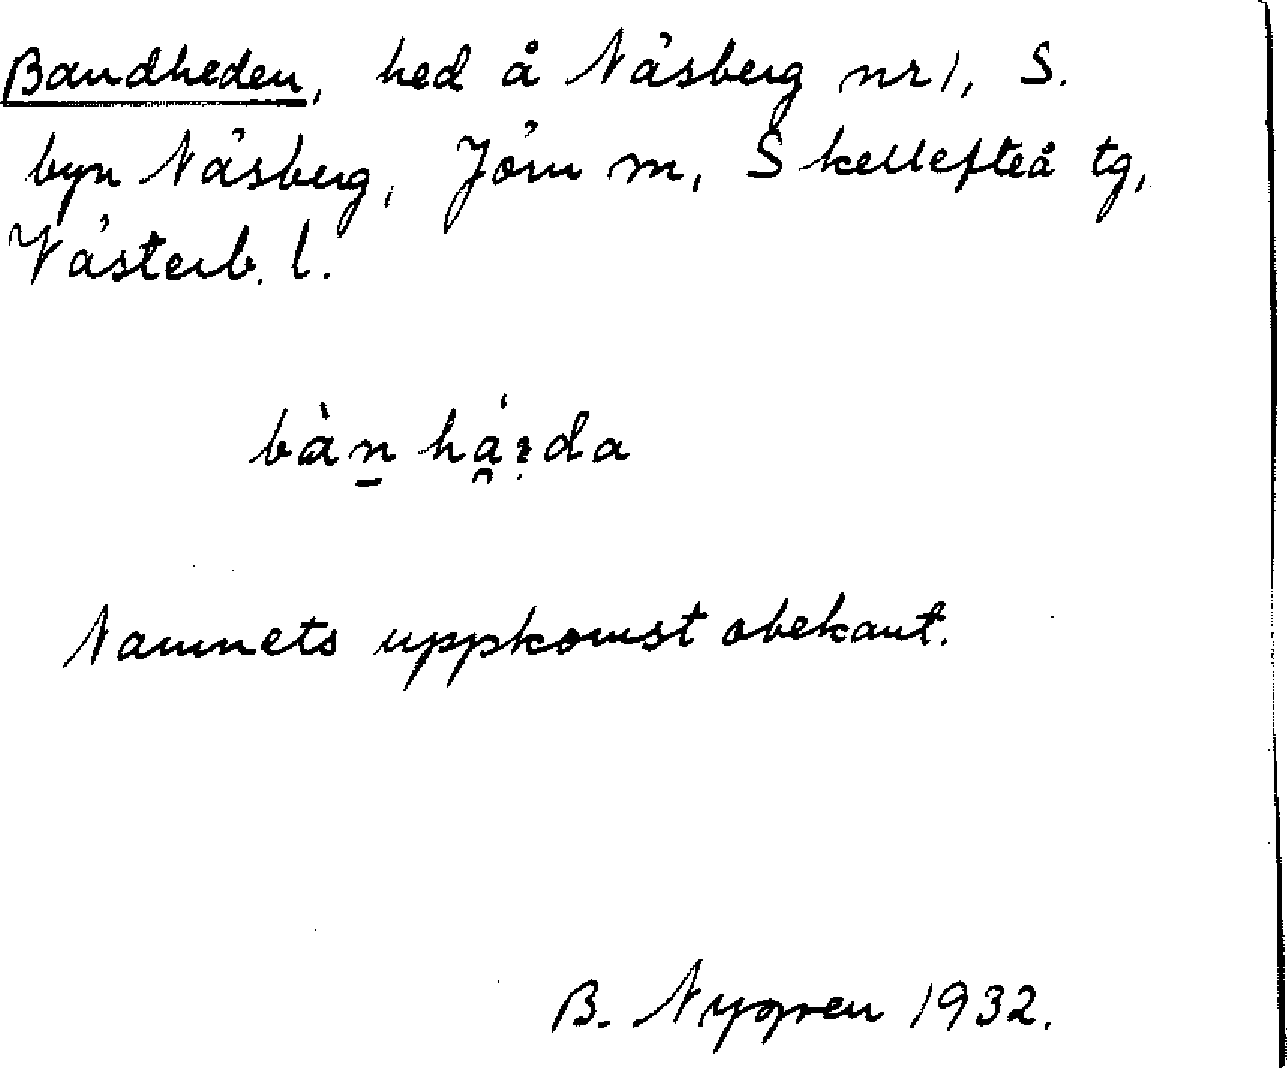 Bandheden, hed å Näsberg nr 1, S.
byn Näsberg, Jörn m, Skellefteå tg,
Västerb. l.
Namnets uppkomst obekant.
B. Nygren 1932.